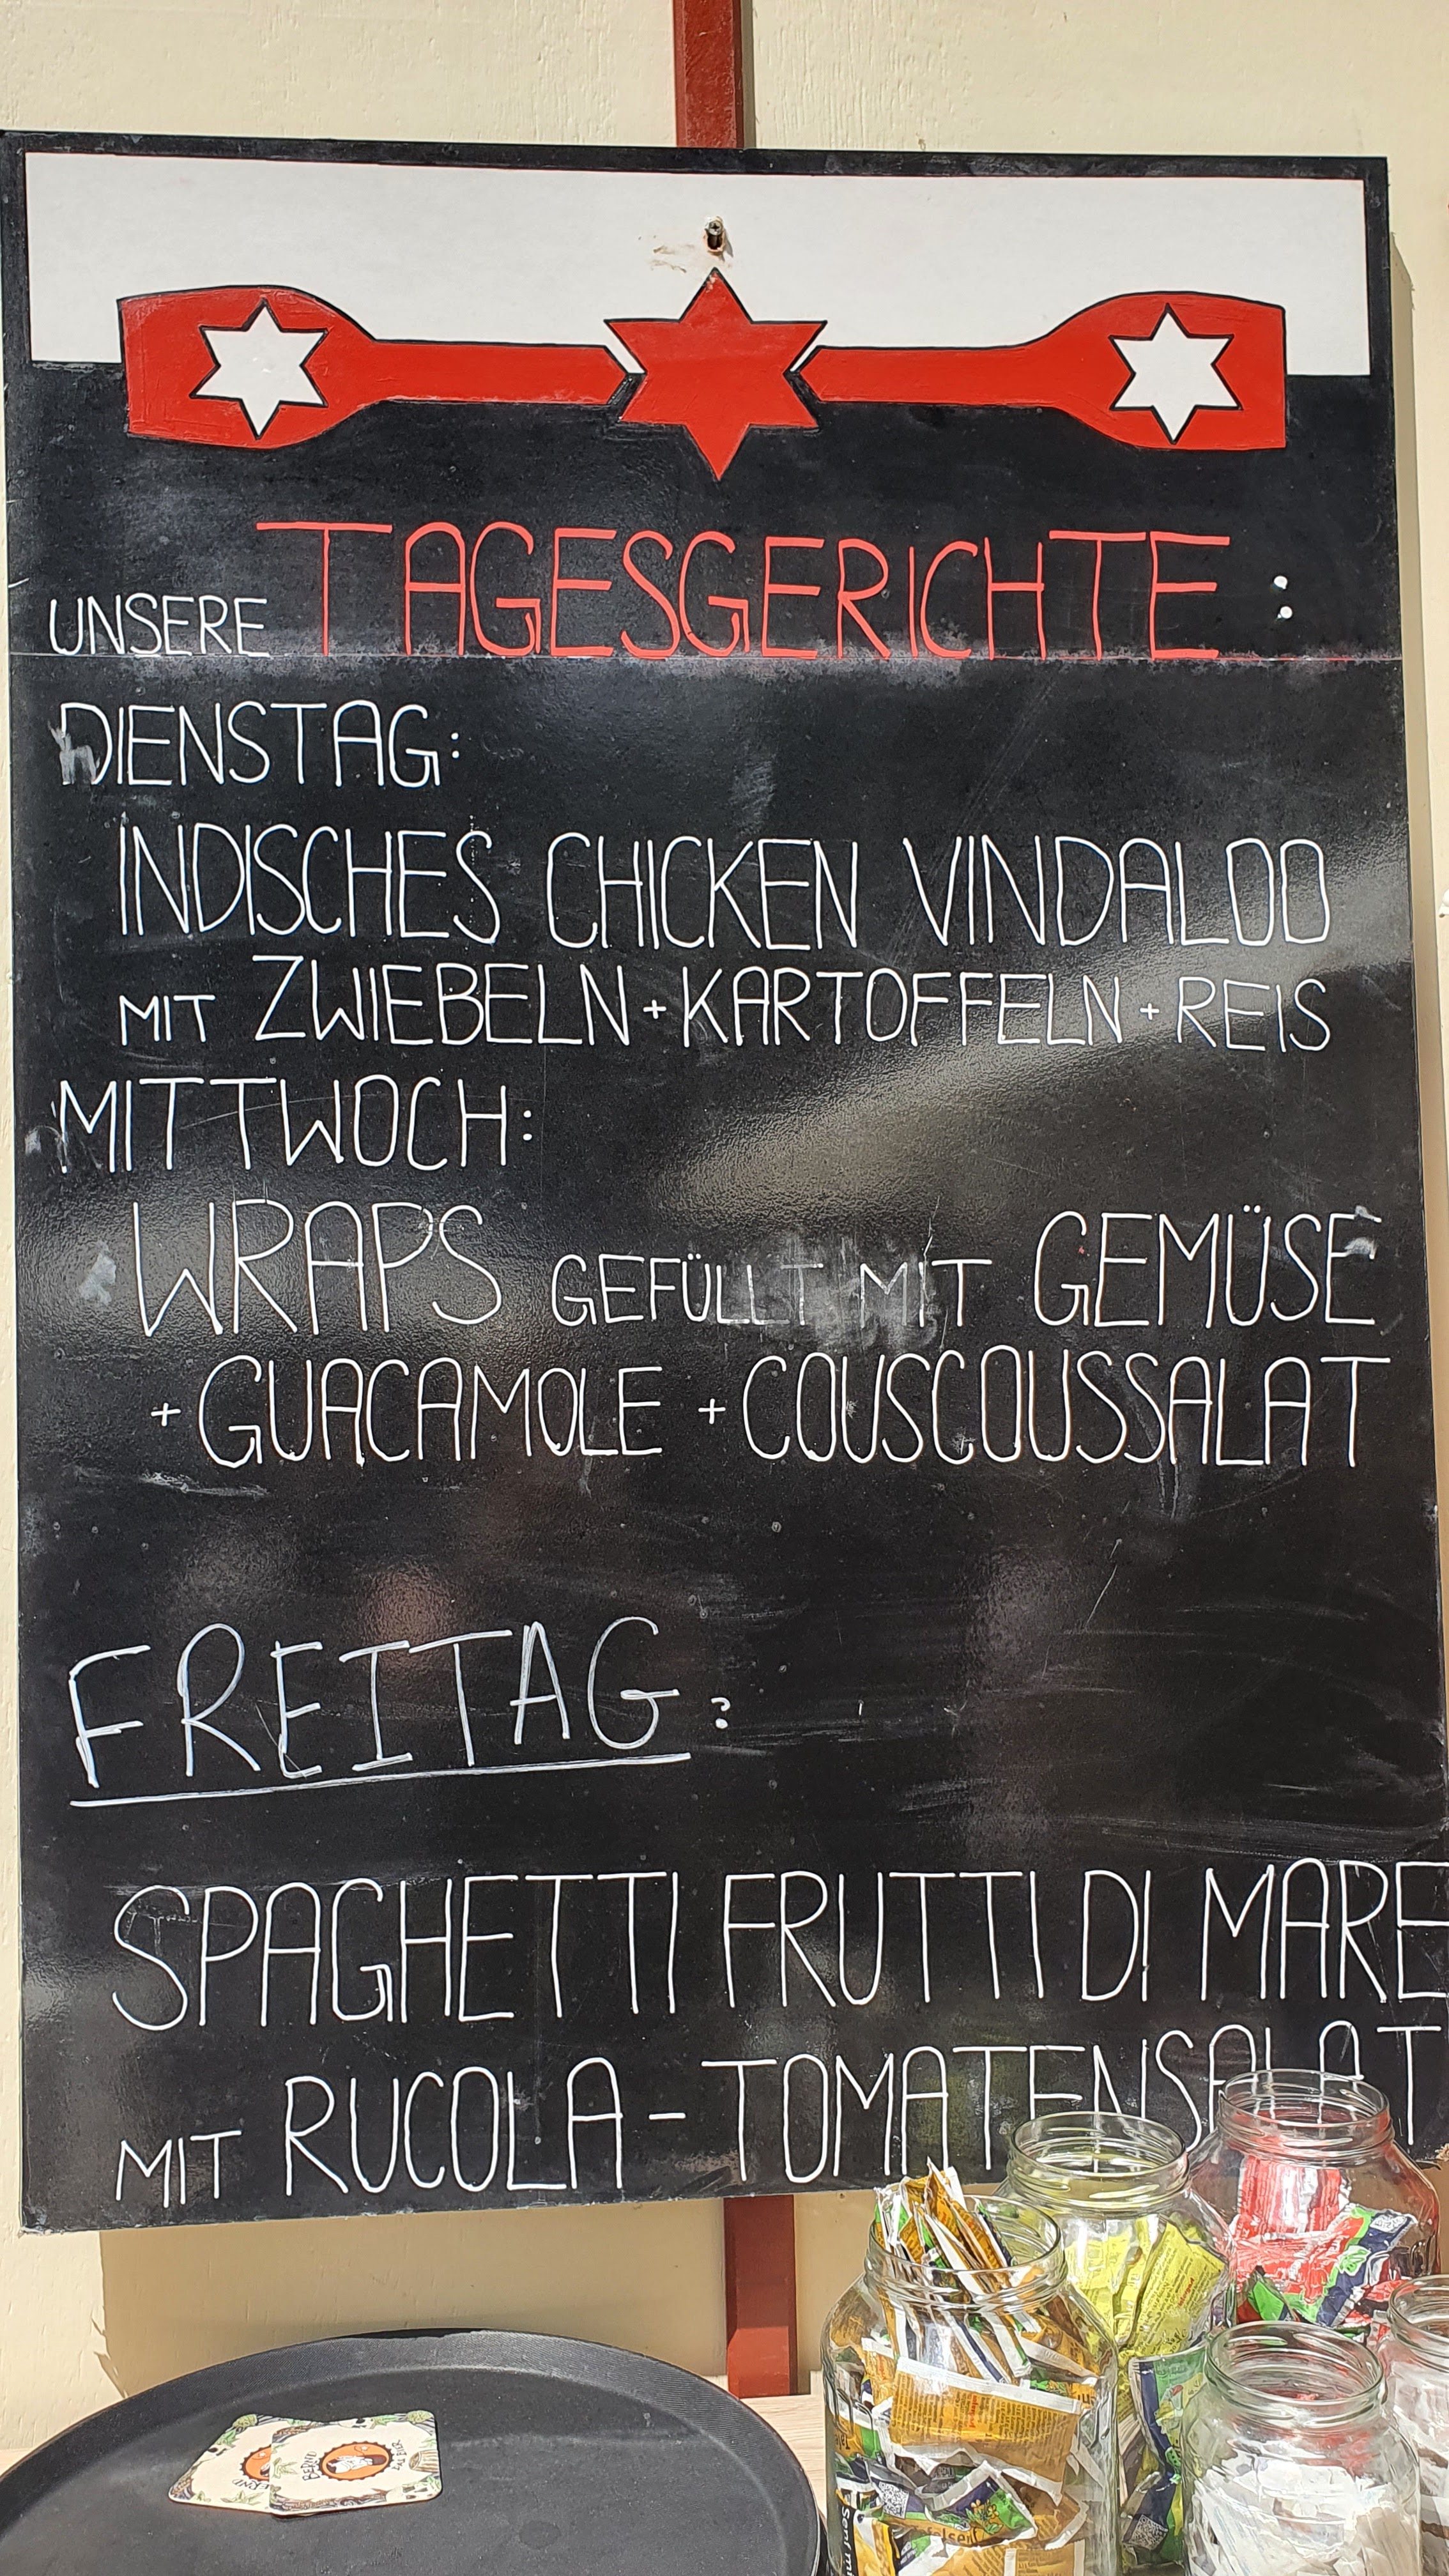 UNSERE TAGESGERICHTE:
DIENSTAG:
INDISCHES CHICKEN VINDALOO
MIT ZWIEBELN + KARTOFFELN + REIS
MITTWOCH:
WRAPS GEFÜLLT MIT GEMÜSE
+ GUACAMOLE + COUSCOUSSALAT
FREITAG:
SPAGHETTI FRUTTI DI MARE
MIT RUCOLA-TOMATENSALAT